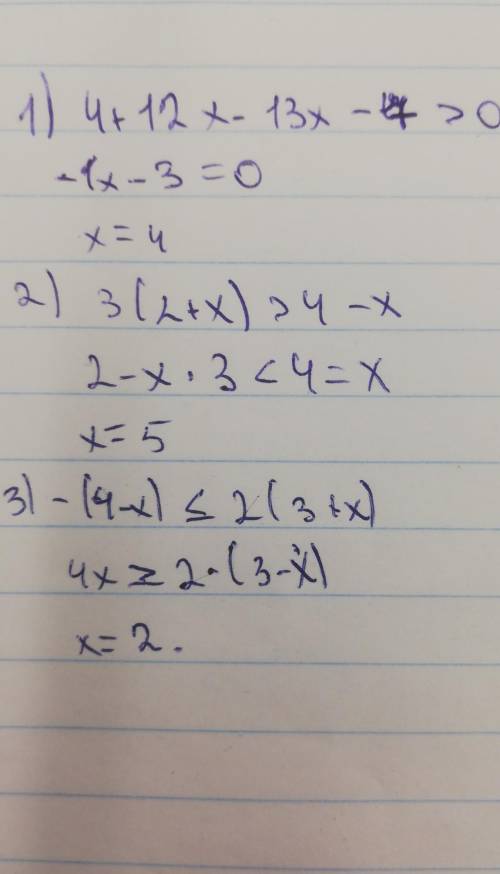 1) 4+12x-13x-4>0
-1x-3=0
x=4
2) 3(2+x)>4-x
2-x·3<4=x
x=5
3) -(4-x)≤2(3+x)
4x≥2·(3-x)
x=2.